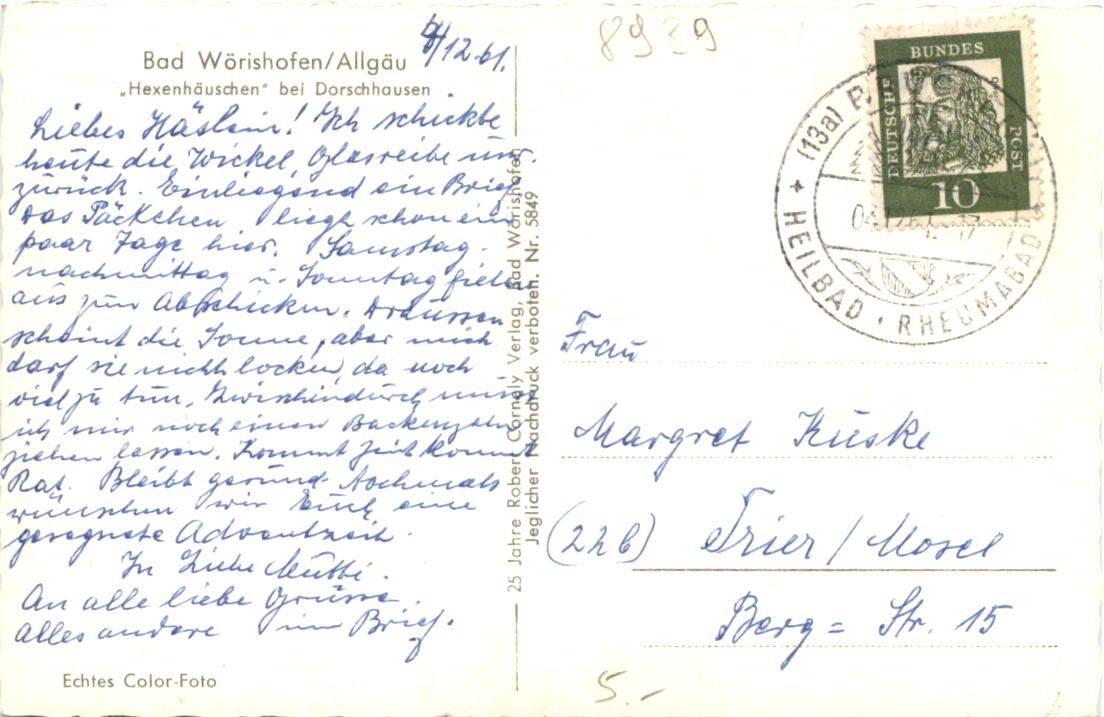 4/12.61.
8939
Bad Wörishofen/Allgäu
„Hexenhäuschen" bei Dorschhausen
Liebes Häslein! Ich schickte
heute die Wickel, Glasreibe usw.
zurück. Einliegend ein Brief
Das Päckchen liegt schon ein
paar Tage hier. Samstag-
nachmittag u. Sonntag fielen
aus zum Abschicken. Draussen
scheint die Sonne, aber mich
darf sie nicht locken, da noch
viel zu tun. Zwischendurch muss
ich mir noch einen Backenzahn
ziehen lassen. Kommt Zeit kommt
Rat. Bleibt gesund. Nochmals
wünschen wir Euch eine
gesegnete Adventzeit.
In Liebe Mutti.
An alle liebe Grüsse.
Alles andere im Brief.
Echtes Color-Foto
25 Jahre Robert Cornely Verlag, Bad Wörishofen
Jeglicher Nachdruck verboten. Nr. 5849
DEUTSCHE BUNDES POST
10
(13a)
HEILBAD · RHEUMABAD
Frau
Margret Küske
(22b) Trier / Mosel
Berg= Str. 15
5.-